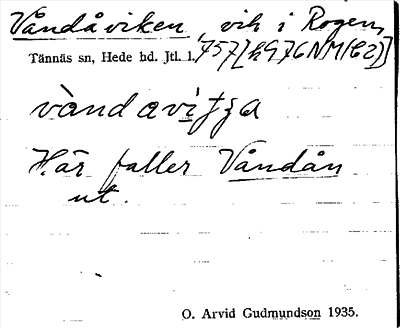 Våndåviken, vik i Rogen,
Tännäs sn, Hede hd. Jtl. l. 757[h976NM(C2)]
våndavitʃa
Här faller Våndån
ut.
O. Arvid Gudmundson 1935.